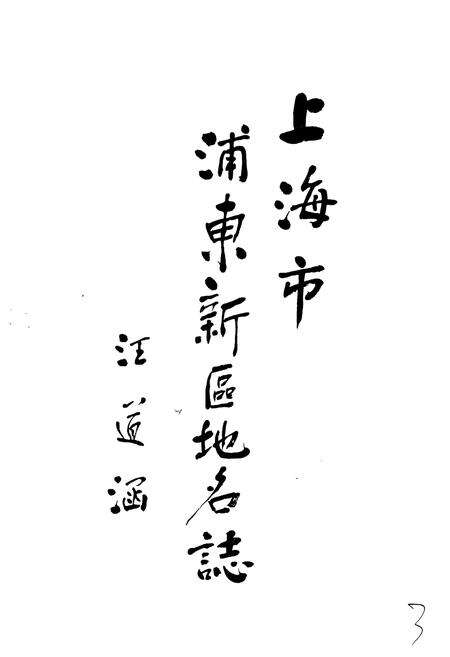 上海市
浦東新區地名誌
汪道涵
3